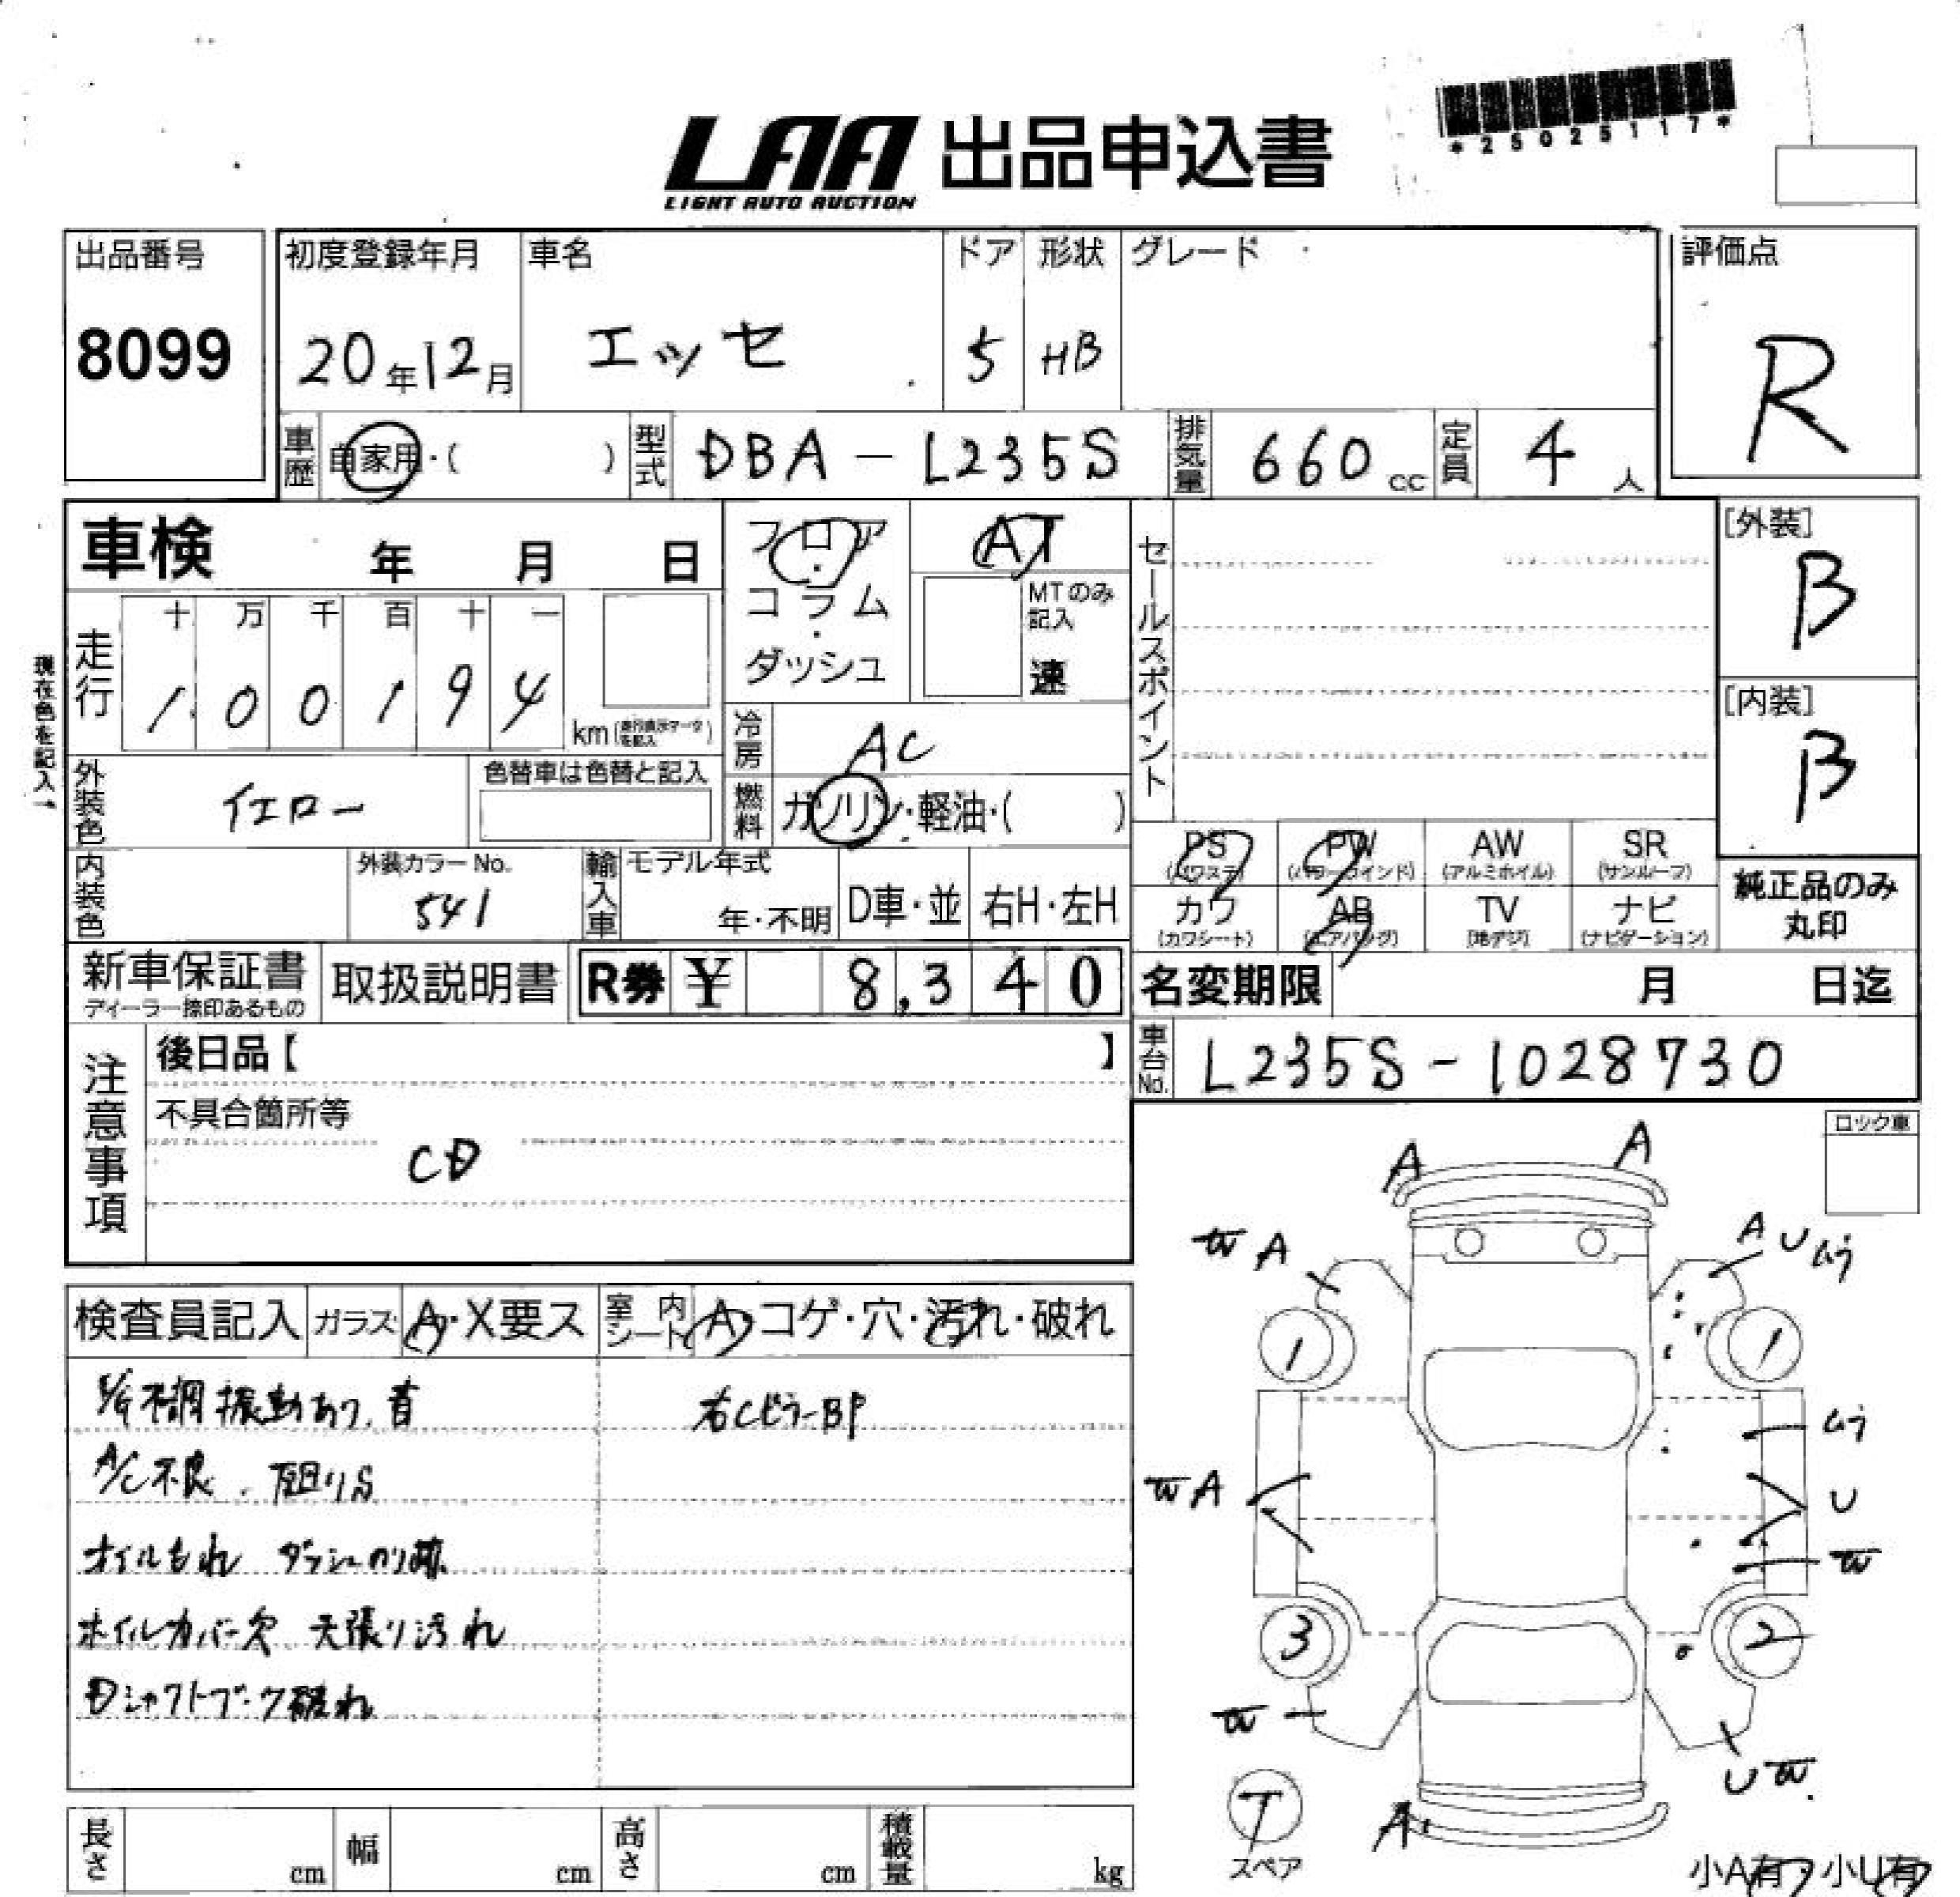 *25025117*
LAA 出品申込書
LIGHT AUTO AUCTION
出品番号 初度登録年月 車名 ドア 形状 グレード 評価点
8099 20年12月 エッセ 5 HB R
車歴 自家用・( ) 型式 DBA-L235S 排気量 660cc 定員 4人
車検 年 月 日 フロア・コラム・ダッシュ AT セールスポイント [外装]
B
MTのみ記入 速
現在色を記入→
走行 十 万 千 百 十 一
1 0 0 1 9 4 km
[内装]
B
冷房 AC
外装色 イエロー 色替車は色替と記入 燃料 ガソリン・軽油・( )
PS (パワステ) PW (パワーウインド) AW (アルミホイル) SR (サンルーフ)
内装色 外装カラーNo. 541 輸入車 モデル年式 年・不明 D車・並 右H・左H
カワ (カワシート) AB (エアバッグ) TV [地デジ] ナビ (ナビゲーション)
純正品のみ丸印
新車保証書 取扱説明書 R券 ¥ 8,340 名変期限 月 日迄
ディーラー捺印あるもの
注意事項 後日品【 】 車台No. L235S-1028730
不具合箇所等
CD
ロック車
A A
W A A U
検査員記入 ガラス A・X要ス 室内シート A・コゲ・穴・汚れ・破れ
1 1
E/G不調 振動あり、音 右CピラーBP
A/C不良
W A U
オイルもれ ダッシュのり跡 W
ホイルカバー欠 天張り汚れ
3 2
Dシャフトブーツ破れ
W
U W
T
スペア
A
長さ cm 幅 cm 高さ cm 積載量 kg
小A有・小U有